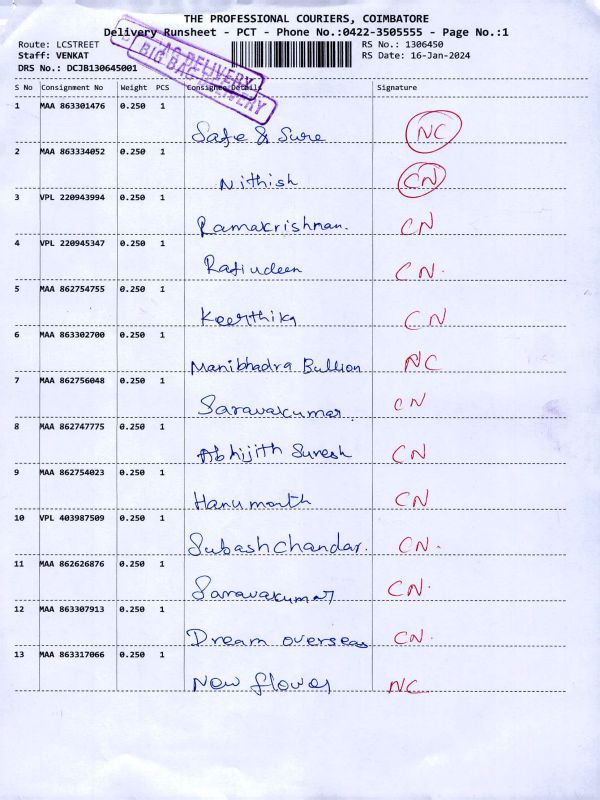 THE PROFESSIONAL COURIERS, COIMBATORE
Delivery Runsheet - PCT - Phone No.:0422-3505555 - Page No.:1
Route: LCSTREET RS No.: 1306450
Staff: VENKAT RS Date: 16-Jan-2024
DRS No.: DCJB130645001
AG DELIVERY
BIG BAG DELIVERY
S No Consignment No Weight PCS Consignee Details Signature
1 MAA 863301476 0.250 1
Safe & Sure NC
2 MAA 863334052 0.250 1
Nithish CN
3 VPL 220943994 0.250 1
Ramakrishnan. CN
4 VPL 220945347 0.250 1
Rafiudeen CN.
5 MAA 862754755 0.250 1
Keerthika CN
6 MAA 863302700 0.250 1
Manibhadra Bullion NC
7 MAA 862756048 0.250 1
Saravakumar. CN
8 MAA 862747775 0.250 1
Abhijith Suresh CN
9 MAA 862754023 0.250 1
Hanumanth CN
10 VPL 403987509 0.250 1
Subashchandar. CN.
11 MAA 862626876 0.250 1
Saravakumar CN.
12 MAA 863307913 0.250 1
Dream overseas CN.
13 MAA 863317066 0.250 1
New flower NC